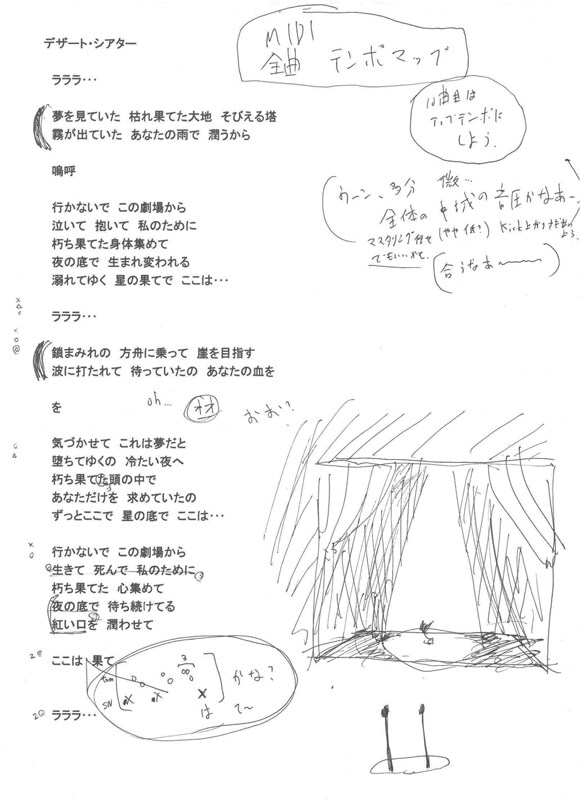 デザート・シアター
MIDI
全曲 テンポマップ
ラララ・・・
10曲目は
アップテンポに
しよう。
夢を見ていた 枯れ果てた大地 そびえる塔
霧が出ていた あなたの雨で 潤うから
嗚呼
ウーン、多分 微…
全体の 中域の音圧かなあー
マスタリング
(やや低?)
Kick上がり
でもいいかも。
合うなあ〜
行かないで この劇場から
泣いて 抱いて 私のために
朽ち果てた身体集めて
夜の底で 生まれ変われる
溺れてゆく 星の果てで ここは・・・
ラララ・・・
鎖まみれの 方舟に乗って 崖を目指す
波に打たれて 待っていたの あなたの血を
を
oh...
オオ
おお?
気づかせて これは夢だと
堕ちてゆくの 冷たい夜へ
朽ち果てた頭の中で
あなただけを 求めていたの
ずっとここで 星の底で ここは・・・
行かないで この劇場から
生きて 死んで 私のために
朽ち果てた 心集めて
夜の底で 待ち続けてる
紅い口を 潤わせて
ここは 果て
かな?
SN
は て〜
ラララ・・・